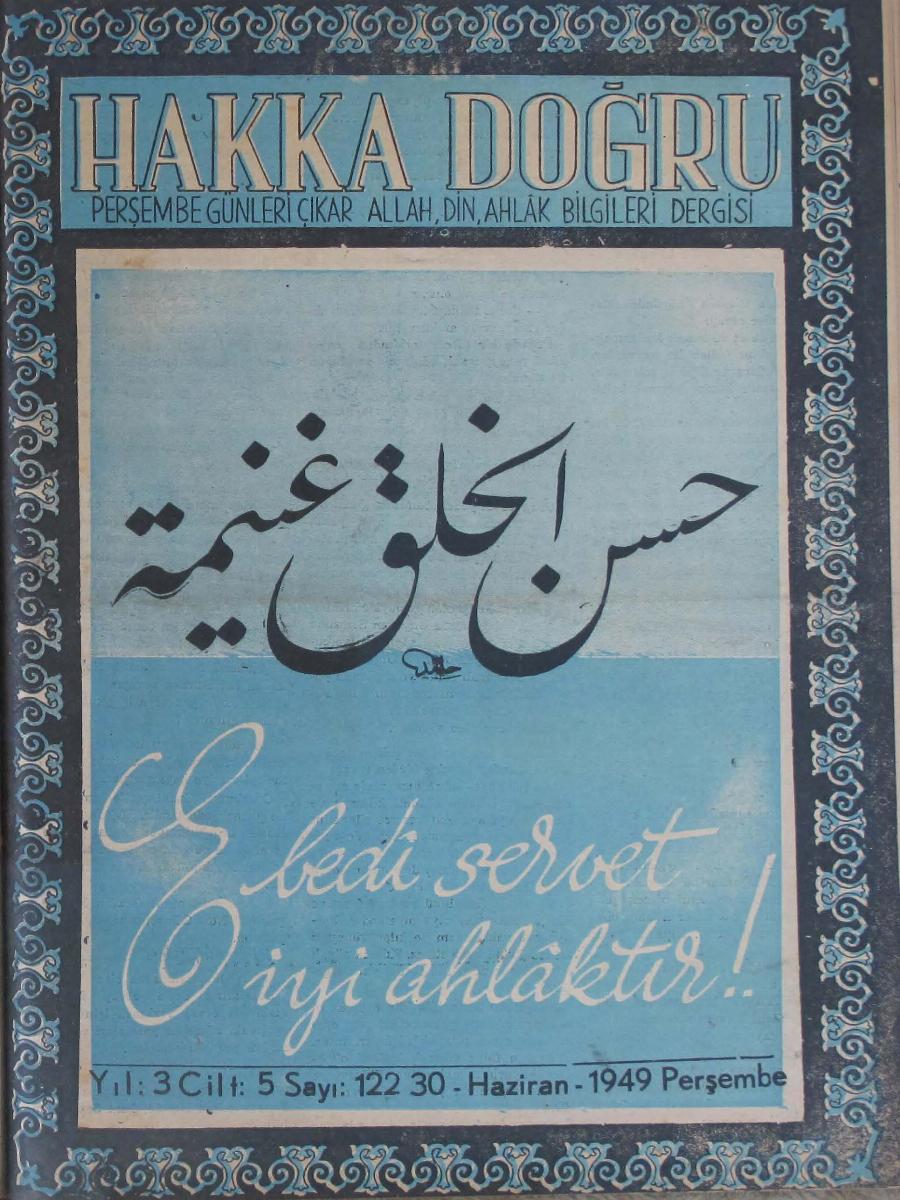 HAKKA DOĞRU
PERŞEMBE GÜNLERİ ÇIKAR ALLAH, DİN, AHLÂK BİLGİLERİ DERGİSİ
حسن الخلق غنيمة
حامد
Ebedi servet
iyi ahlâktır!..
Yıl: 3 Cilt: 5 Sayı: 122 30 - Haziran - 1949 Perşembe